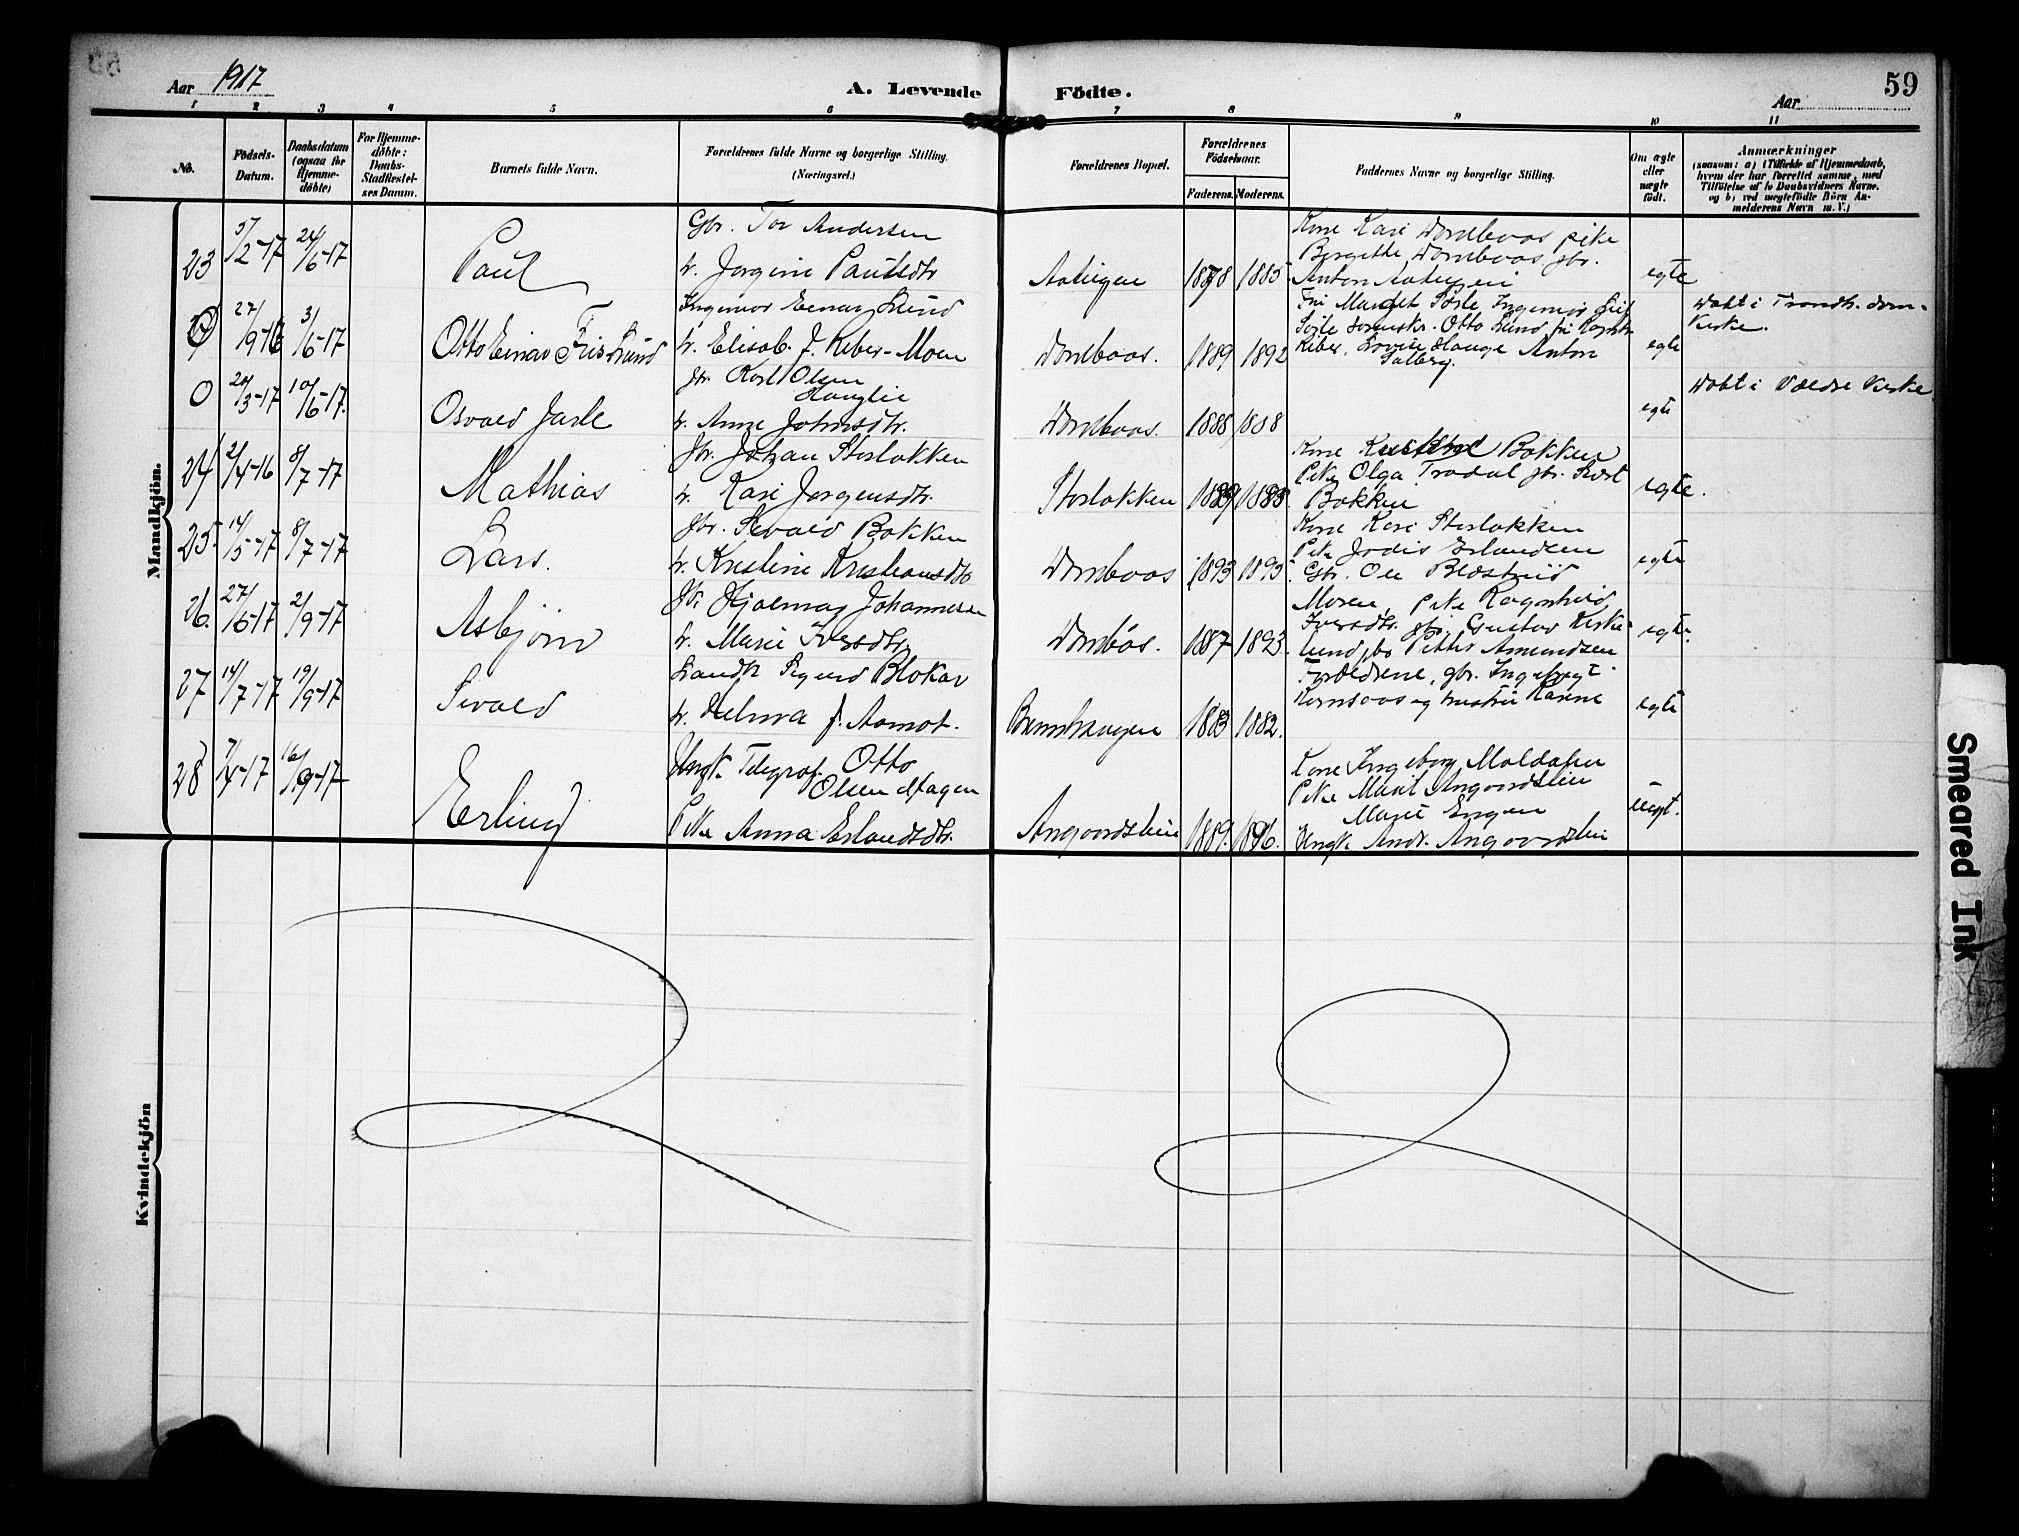 Aar 1917
A. Levende Födte.
Aar
59
1 2 3 4 5 6 7 8 9 10 11
No.
Födsels-Datum.
Daabsdatum (ogsaa for Hjemme-döbte)
For Hjemme-döbte: Daabs-Stadfæstel-ses Datum.
Barnets fulde Navn.
Forældrenes fulde Navne og borgerlige Stilling.
(Næringsvei.)
Forældrenes Bopæl.
Forældrenes Födselsaar.
Faderens. Moderens.
Faddernes Navne og borgerlige Stilling.
Om ægte eller uægte födt.
Anmærkninger
(saasom: a) i Tilfælde af Hjemmedaab,
hvem der har forrettet samme, med
Tilföielse af to Daabsvidners Navne.
og b) ved uægtefödte Börn An-
melderens Navn m. V.)
Mandkjön.
23 5/2-17 24/6-17 Paul
Gbr. Tor Andersen
h. Jørgine Paulsdtr
1878 1885
Kone Kari Dombaas pike
Bergitte Dombaas gbr.
Anton
egte
27/9-16 3/6-17 Otto Einar Friis Lund
Ingeniør Einar Lund
h. Elisab. f. Reber-Moen
Dombaas. 1889 1892
Otto Lund
Hauge Anton
Salberg.
egte
Døbt i Trondh. dom-
kirke.
0 20/3-17 10/6-17. Osvald Jarle
gbr. Karl Olsen
Hauglie
h. Anne Johnsdtr.
Dombaas. 1888 1888
egte
Døbt i Valdse kirke.
24 2/4-16 8/7-17 Mathias
gbr. Johan Storløkken
h. Kari Jørgensdtr.
Storløkken 1889 1888
Kone Bakken
Pike Olga Trødal gbr.
Bakken
egte.
25. 14/5-17 8/7-17 Lars.
gbr. Sivald Bakken
h. Kristine Kristiansdtr
Dombaas 1893 1895
Kone Kari Storløkken
Pike Jodis Erlandsen
Gbr. Ole
egte
26. 27/6-17 2/9-17 Asbjørn
gbr. Hjalmar Johannesen
h. Marie Iversdtr
Dombås. 1887 1893.
Moren, pike Ragnhild
Iversdtr. gbr. Gustav Kirke-
lund, gbr Petter Amundsen
egte.
27 14/7-17 19/9-17 Sivald
Landh. Sigurd Blekar
h. Helma f. Aamot.
Brendhaugen 1883 1882.
Forældrene, gbr. Ingebrigt
Kornsaas og hustru Karine
egte
28 7/4-17 16/9-17 Erling
Ungk. Telegraf. Otto
Olsen Hagen
Pike Anna Erlandsdtr.
Angaardslien 1889. 1896.
Kone Ingeborg Moldager
Pike Marit Angaardslien
Marie Engen
Ungk. Andr. Angaardslien
uegt.
Kvindekjön
Smeared Ink